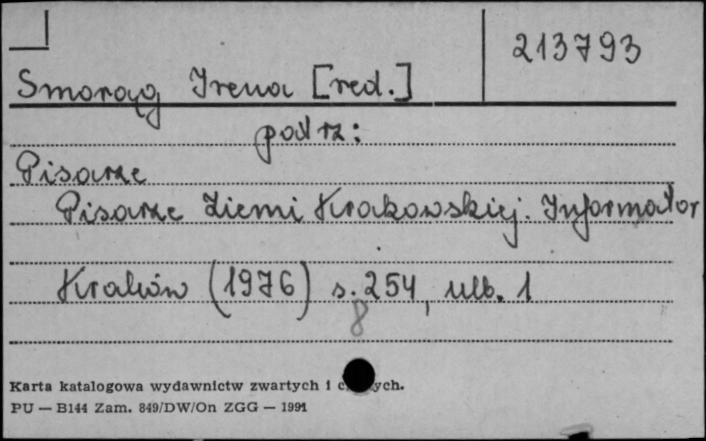 213793
Smorąg Irena [red.]
patrz:
Pisarze
Pisarze Ziemi Krakowskiej. Informator
Kraków (1976) s. 254, nlb. 1
8
Karta katalogowa wydawnictw zwartych i ych.
PU — B144 Zam. 849/DW/On ZGG — 1991